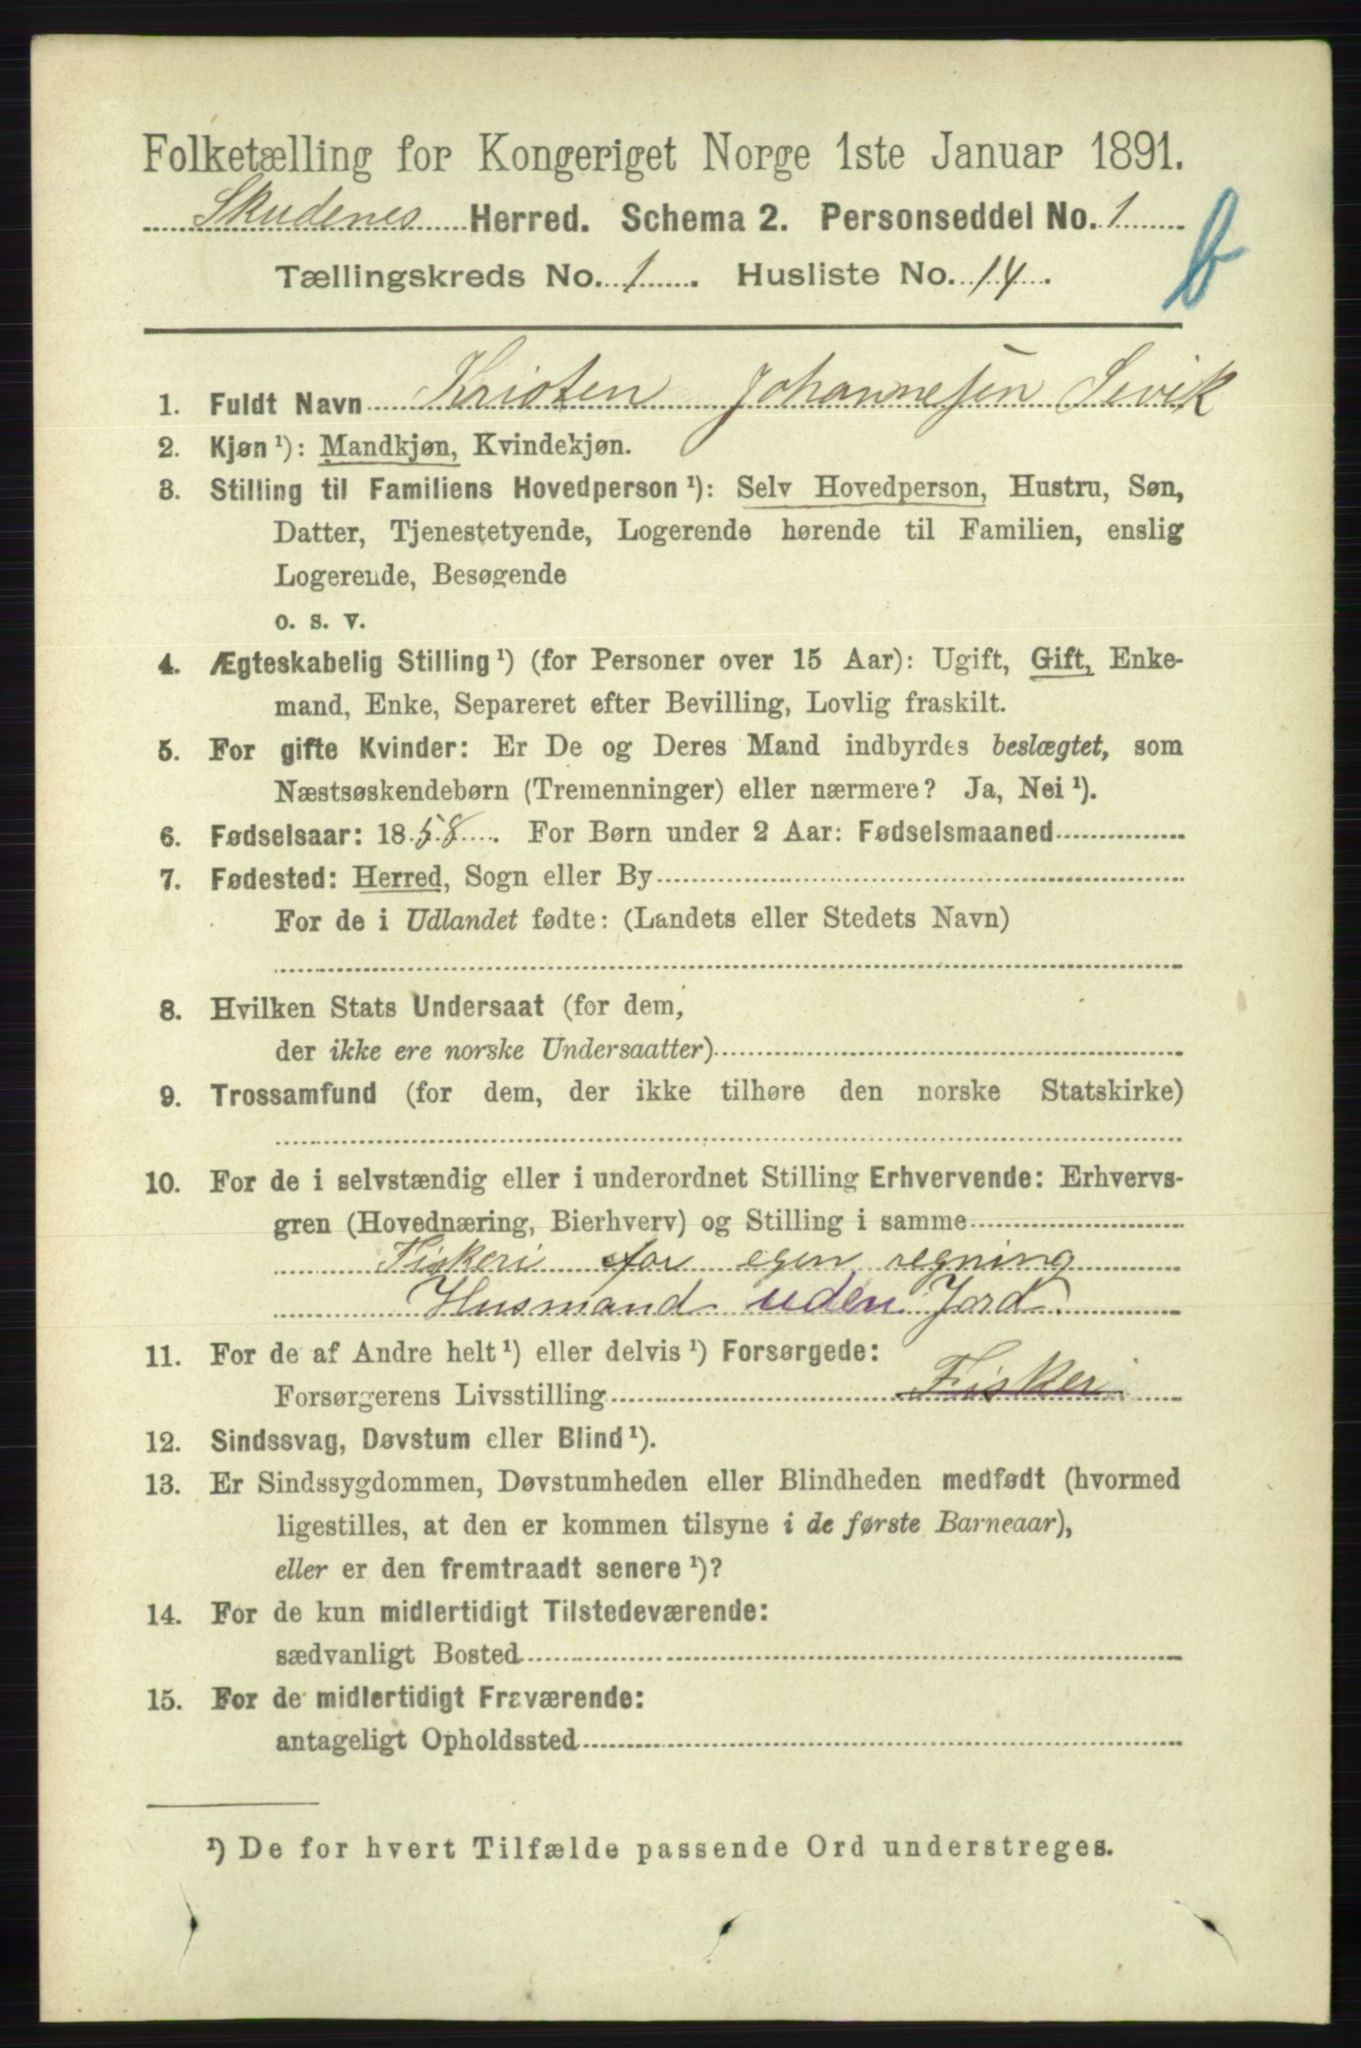 Folketælling for Kongeriget Norge 1ste Januar 1891.
Skudenes Herred. Schema 2. Personseddel No. 1
Tællingskreds No. 1. Husliste No. 14.
b
1. Fuldt Navn Kristen Johannesen Sevik
2. Kjøn ¹): Mandkjøn, Kvindekjøn.
3. Stilling til Familiens Hovedperson ¹): Selv Hovedperson, Hustru, Søn,
Datter, Tjenestetyende, Logerende hørende til Familien, enslig
Logerende, Besøgende
o. s. v.
4. Ægteskabelig Stilling ¹) (for Personer over 15 Aar): Ugift, Gift, Enke-
mand, Enke, Separeret efter Bevilling, Lovlig fraskilt.
5. For gifte Kvinder: Er De og Deres Mand indbyrdes beslægtet, som
Næstsøskendebørn (Tremenninger) eller nærmere? Ja, Nei ¹).
6. Fødselsaar: 1858. For Børn under 2 Aar: Fødselsmaaned
7. Fødested: Herred, Sogn eller By
For de i Udlandet fødte: (Landets eller Stedets Navn)
8. Hvilken Stats Undersaat (for dem,
der ikke ere norske Undersaatter)
9. Trossamfund (for dem, der ikke tilhøre den norske Statskirke)
10. For de i selvstændig eller i underordnet Stilling Erhvervende: Erhvervs-
gren (Hovednæring, Bierhverv) og Stilling i samme
Fiskeri for egen regning
Husmand uden Jord.
11. For de af Andre helt ¹) eller delvis ¹) Forsørgede:
Forsørgerens Livsstilling Fiskeri
12. Sindssvag, Døvstum eller Blind ¹).
13. Er Sindssygdommen, Døvstumheden eller Blindheden medfødt (hvormed
ligestilles, at den er kommen tilsyne i de første Barneaar),
eller er den fremtraadt senere ¹)?
14. For de kun midlertidigt Tilstedeværende:
sædvanligt Bosted
15. For de midlertidigt Fraværende:
antageligt Opholdssted
¹) De for hvert Tilfælde passende Ord understreges.